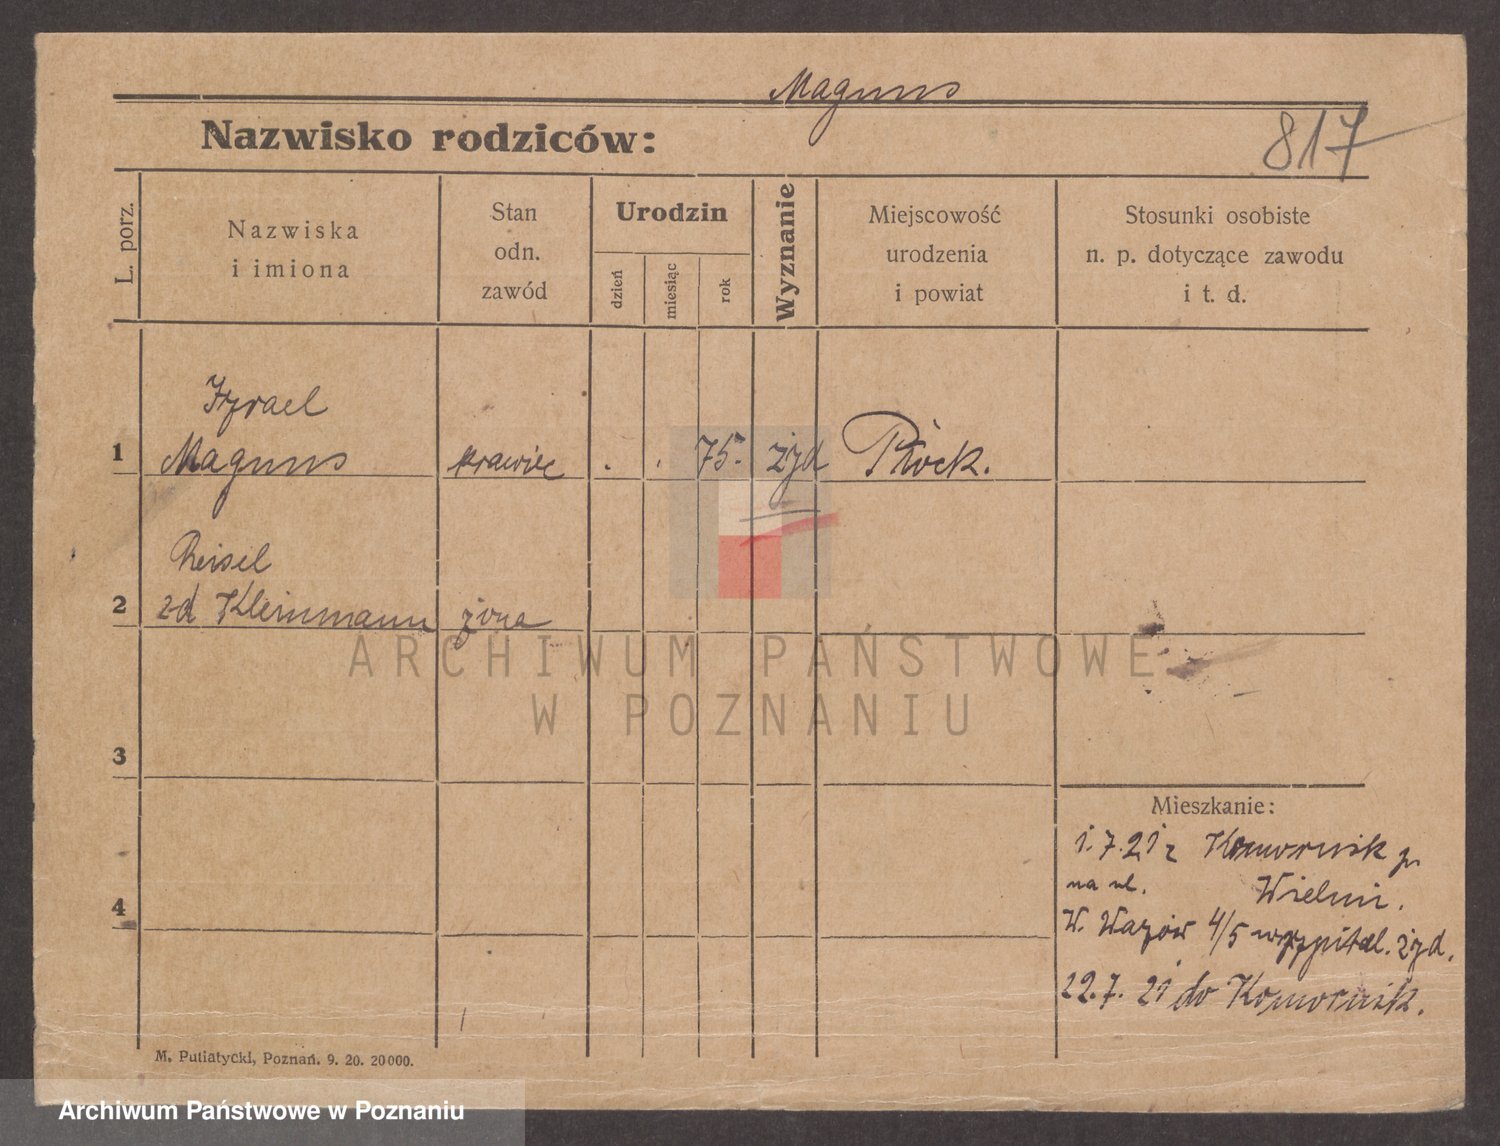 Magnus
Nazwisko rodziców:
817
L. porz.
Nazwiska
i imiona
Stan
odn.
zawód
Urodzin
dzień
miesiąc
rok
Wyznanie
Miejscowość
urodzenia
i powiat
Stosunki osobiste
n. p. dotyczące zawodu
i t. d.
Izrael
1 Magnus krawiec . . 75. żyd Płock.
Reisel
2 zd Kleinmann żona
ARCHIWUM PAŃSTWOWE
W POZNANIU
3
4
Mieszkanie:
1.7.21 z Komornik p.
na ul. Wieluń.
W. Wazów 4/5 w szpital. żyd.
22.7.21 do Komornik.
M. Putiatycki, Poznań. 9. 20. 20000.
Archiwum Państwowe w Poznaniu